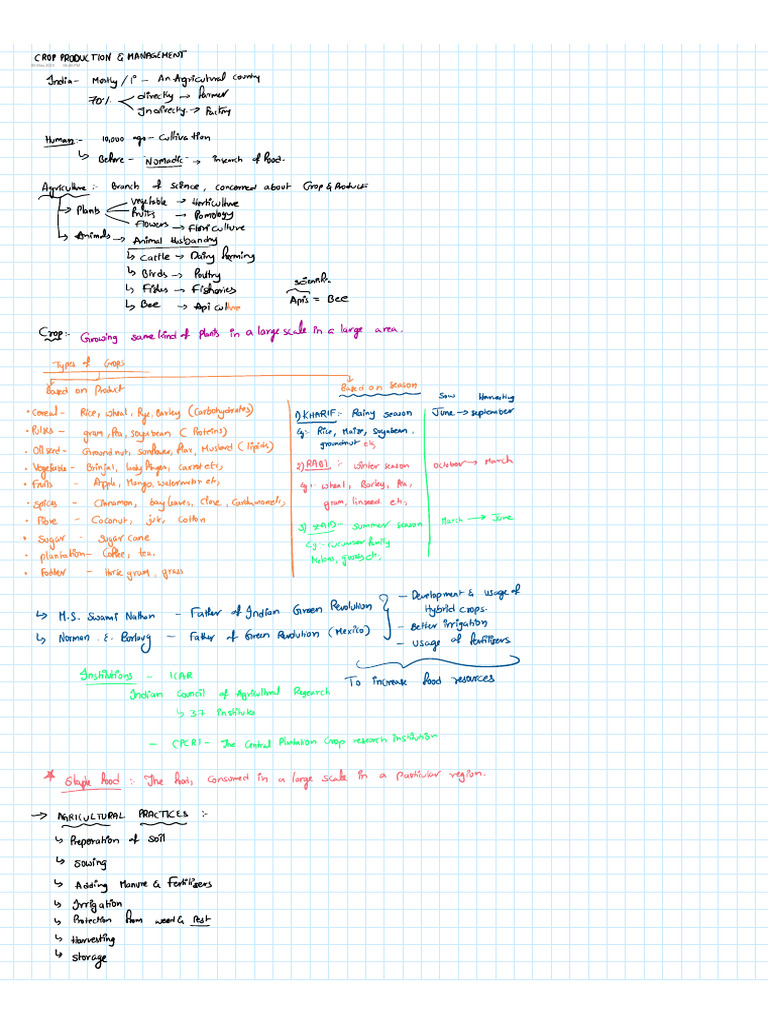 CROP PRODUCTION & MANAGEMENT
India - Mostly / 1° - An Agricultural country
70% directly → Farmer
Indirectly → Factory
Human :- 10,000 ago - Cultivation
↳ Before - Nomadic → insearch of food.
Agriculture :- Branch of science, concerned about Crop & Product
→ Plants
Vegetable → Horticulture
fruits → Pomology
flowers → Floriculture
↳ Animals → Animal Husbandry
↳ Cattle → Dairy farming
↳ Birds → Poultry
↳ Fishes → Fisheries
↳ Bee → Api culture
Apis = Bee
Crop :- Growing same kind of plants in a large scale in a large area.
Types of Crops
Based on Product
• Cereal - Rice, wheat, Rye, Barley (Carbohydrates)
• Pulses - gram, Pea, soyabean (Proteins)
• Oil seed - Groundnut, sunflower, flax, Mustard (lipids)
• Vegetable - Brinjal, lady finger, carrot etc,
• Fruits - Apple, Mango, watermelon etc,
• Spices - Cinnamon, bay leaves, clove, Cardamom etc,
• Fibre - Coconut, jute, cotton
• Sugar - Sugar cane
• plantation - Coffee, tea.
• Fodder - Horse gram, grass
Based on season
Sow Harvesting
1) KHARIF :- Rainy season June → september
Eg:- Rice, Maize, Soyabean,
groundnut etc,
2) RABI :- winter season October → March
eg:- wheat, Barley, Pea,
gram, linseed etc,
3) ZAID - summer season March → June
Eg:- cucumber family
Melons, gourds etc,
↳ M.S. Swami Nathan - Father of Indian Green Revolution
↳ Norman .E. Borlaug - Father of Green Revolution (Mexico)
- Development & usage of
Hybrid crops.
- Better irrigation
- usage of fertilisers
To increase food resources
Institutions - ICAR
Indian Council of Agricultural Research
↳ 37 institutes
- CPCRI - The Central Plantation Crop research institution
* Staple food :- The food, consumed in a large scale in a particular region.
→ AGRICULTURAL PRACTICES :-
↳ Preperation of soil
↳ Sowing
↳ Adding Manure & Fertilisers
↳ Irrigation
↳ Protection from weed & Pest
↳ Harvesting
↳ Storage